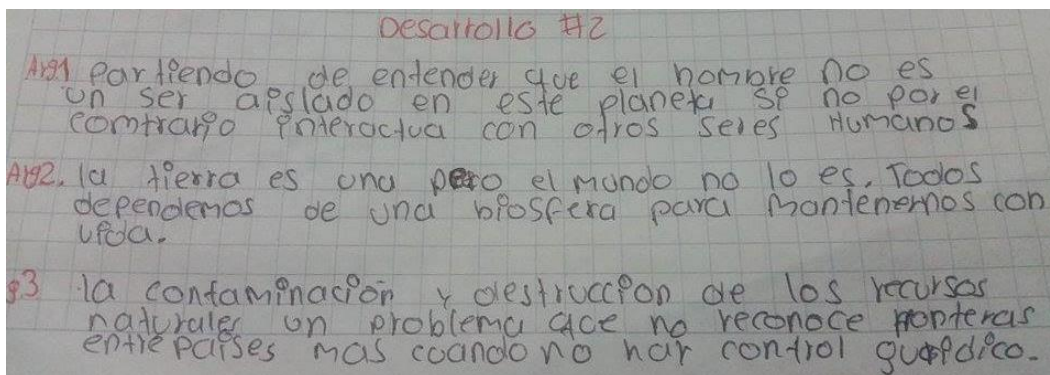 Desarrollo #2
Arg1 Partiendo de entender que el hombre no es
un ser aislado en este planeta si no por el
comtrario interactua con otros seres Humanos
Arg2. la tierra es una pero el mundo no lo es. Todos
dependemos de una biosfera para mantenernos con
vida.
g3 la contaminacion y destruccion de los recursos
naturales un problema que no reconoce fronteras
entre paises mas cuando no hay control